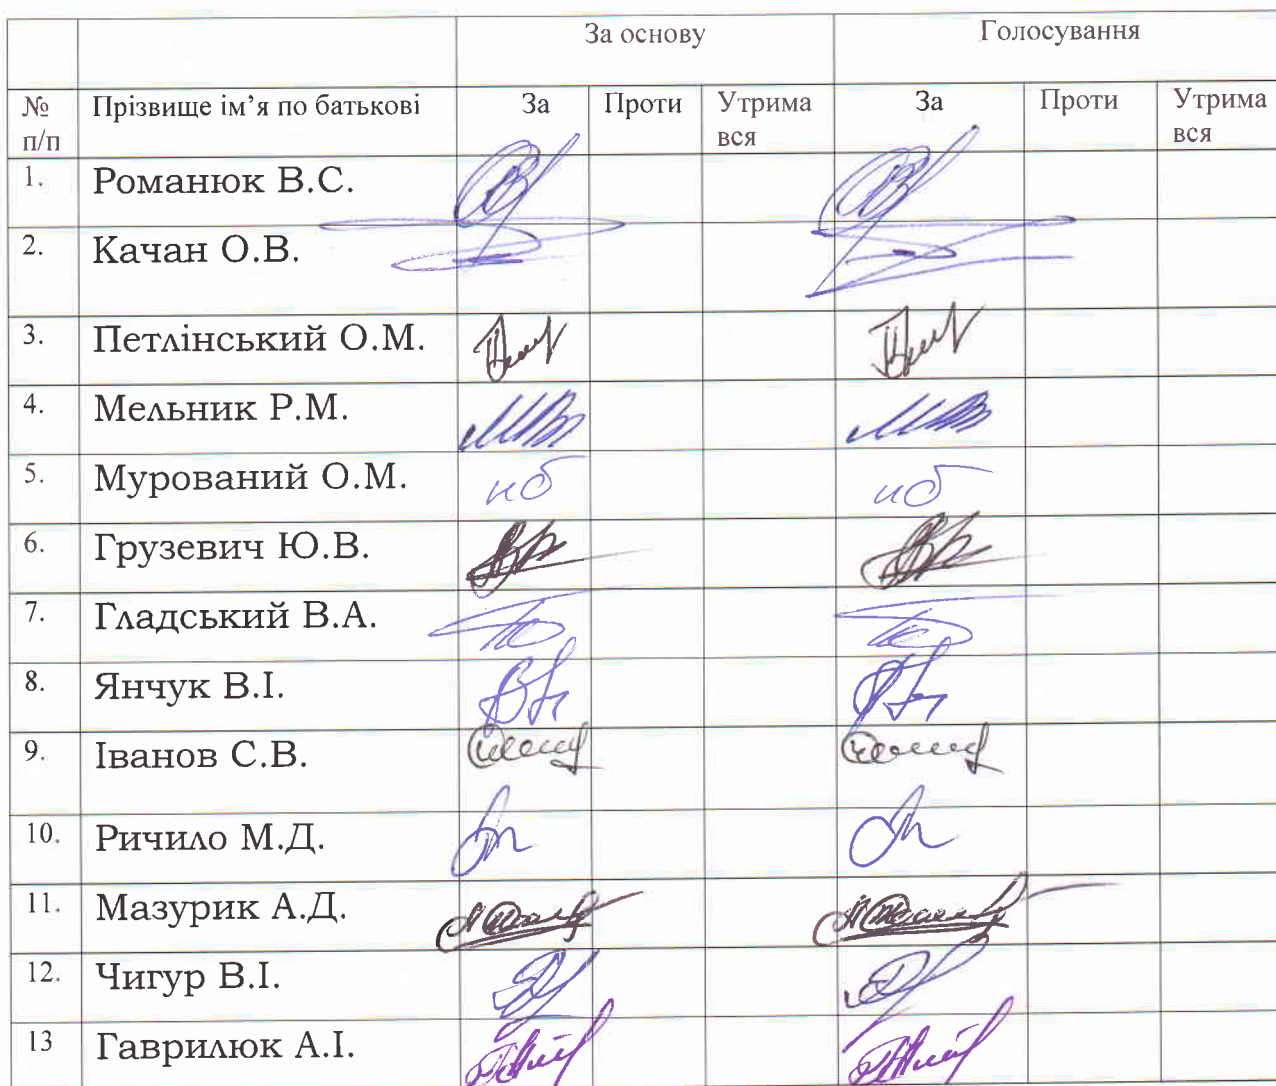 За основу Голосування
№ п/п Прізвище ім’я по батькові За Проти Утрима вся За Проти Утрима вся
1. Романюк В.С.
2. Качан О.В.
3. Петлінський О.М.
4. Мельник Р.М.
5. Мурований О.М. нб нб
6. Грузевич Ю.В.
7. Гладський В.А.
8. Янчук В.І.
9. Іванов С.В.
10. Ричило М.Д.
11. Мазурик А.Д.
12. Чигур В.І.
13 Гаврилюк А.І.